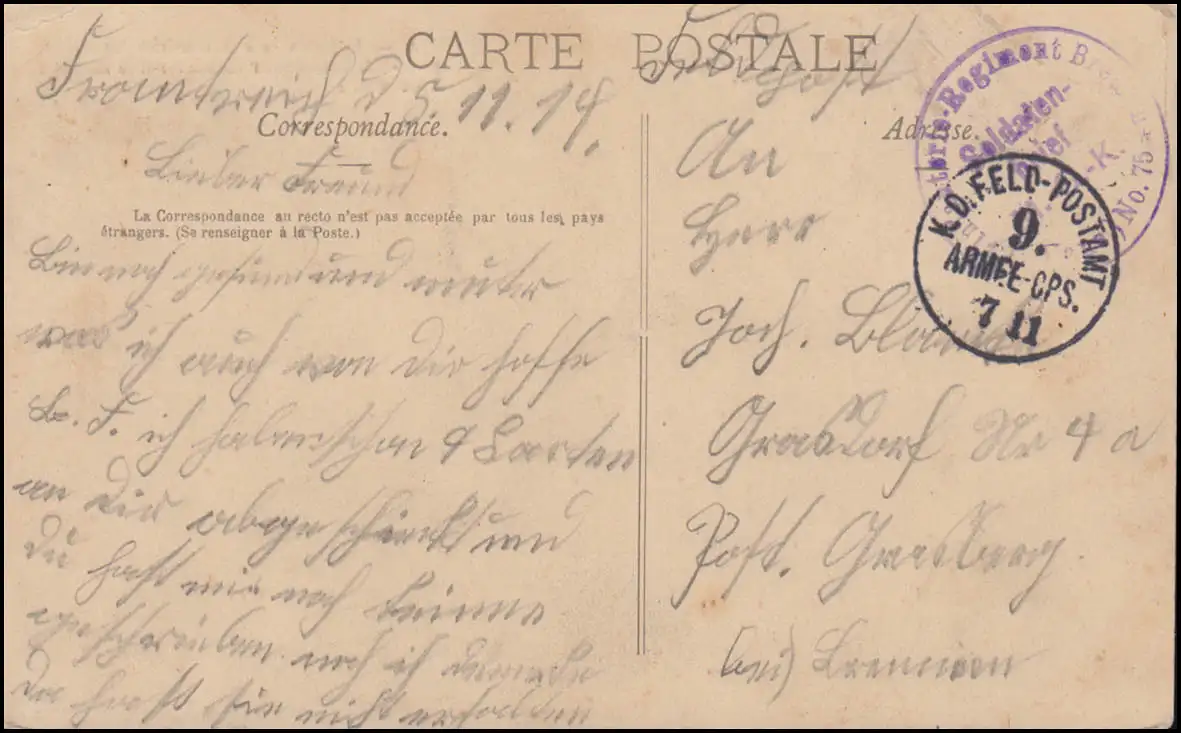 CARTE POSTALE
Frankreich d 5.11.14.
Correspondance.
Lieber Freund
La Correspondance au recto n'est pas acceptée par tous les pays
étrangers. (Se renseigner à la Poste.)
Bin noch gesund und munter
was ich auch von Dir hoffe
L. F. ich habe schon 4 Karten
an Dir abgeschickt und
Du hast mir noch keine
geschrieben noch ich denke
Du hast sie nicht erhalten
Feldpost
Adresse.
An
Herr
Joh.
Grasdorf Nr 4 a
Post. Grasberg
bei) Bremen
Regiment
Soldaten-
brief
No. 75
K. D. FELD-POSTAMT
9.
ARMEE-CPS.
7 11